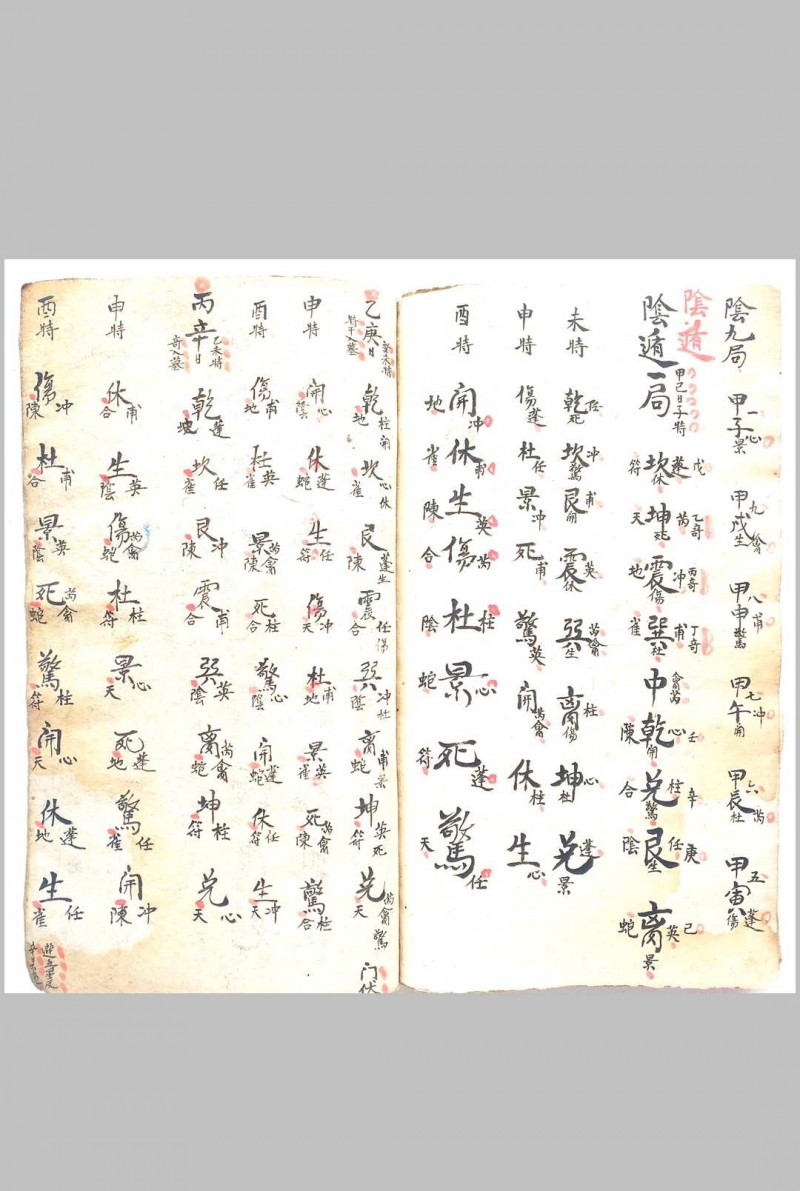 陰九局 甲子一心景 甲戌九禽生 甲申八甫驚 甲午七冲開 甲辰六芮杜 甲寅五蓬傷
陰遁
陰遁一局 甲己日子特 符坎蓬戊休 天坤芮乙奇死 地震冲丙奇傷 雀巽甫丁奇杜 中禽芮 陳乾心壬開 合兌柱辛驚 陰艮任庚生 蛇离英己景
未特 乾任死 坎冲驚 艮甫開 震英休 巽芮禽生 离柱傷 坤心杜 兌蓬景
申特 傷蓬 杜任 景冲 死甫 驚英 開芮禽 休柱 生心
酉特 地開冲 雀休甫 陳生英 合傷芮 陰杜柱 蛇景心 符死蓬 天驚任
乙庚日 癸未特 特干入墓 乾柱開地 坎心休雀 艮蓬生陳 震任傷合 巽冲杜陰 离甫景蛇 坤英死符 兌芮禽驚天 门伏
申特 開心陰 休蓬蛇 生任符 傷冲天 杜甫地 景英雀 死芮禽陳 驚柱合
酉特 傷甫地 杜英雀 景芮禽陳 死柱合 驚心陰 開蓬蛇 休任符 生冲天
丙辛日 乙未特 奇入墓 乾蓬地 坎任雀 艮冲陳 震甫合 巽英陰 离芮禽蛇 坤柱符 兌心天
申特 休甫合 生英陰 傷芮禽蛇 杜柱符 景心天 死蓬地 驚任雀 開冲陳
酉特 傷冲陳 杜甫合 景英陰 死芮禽蛇 驚柱符 開心天 休蓬地 生任雀